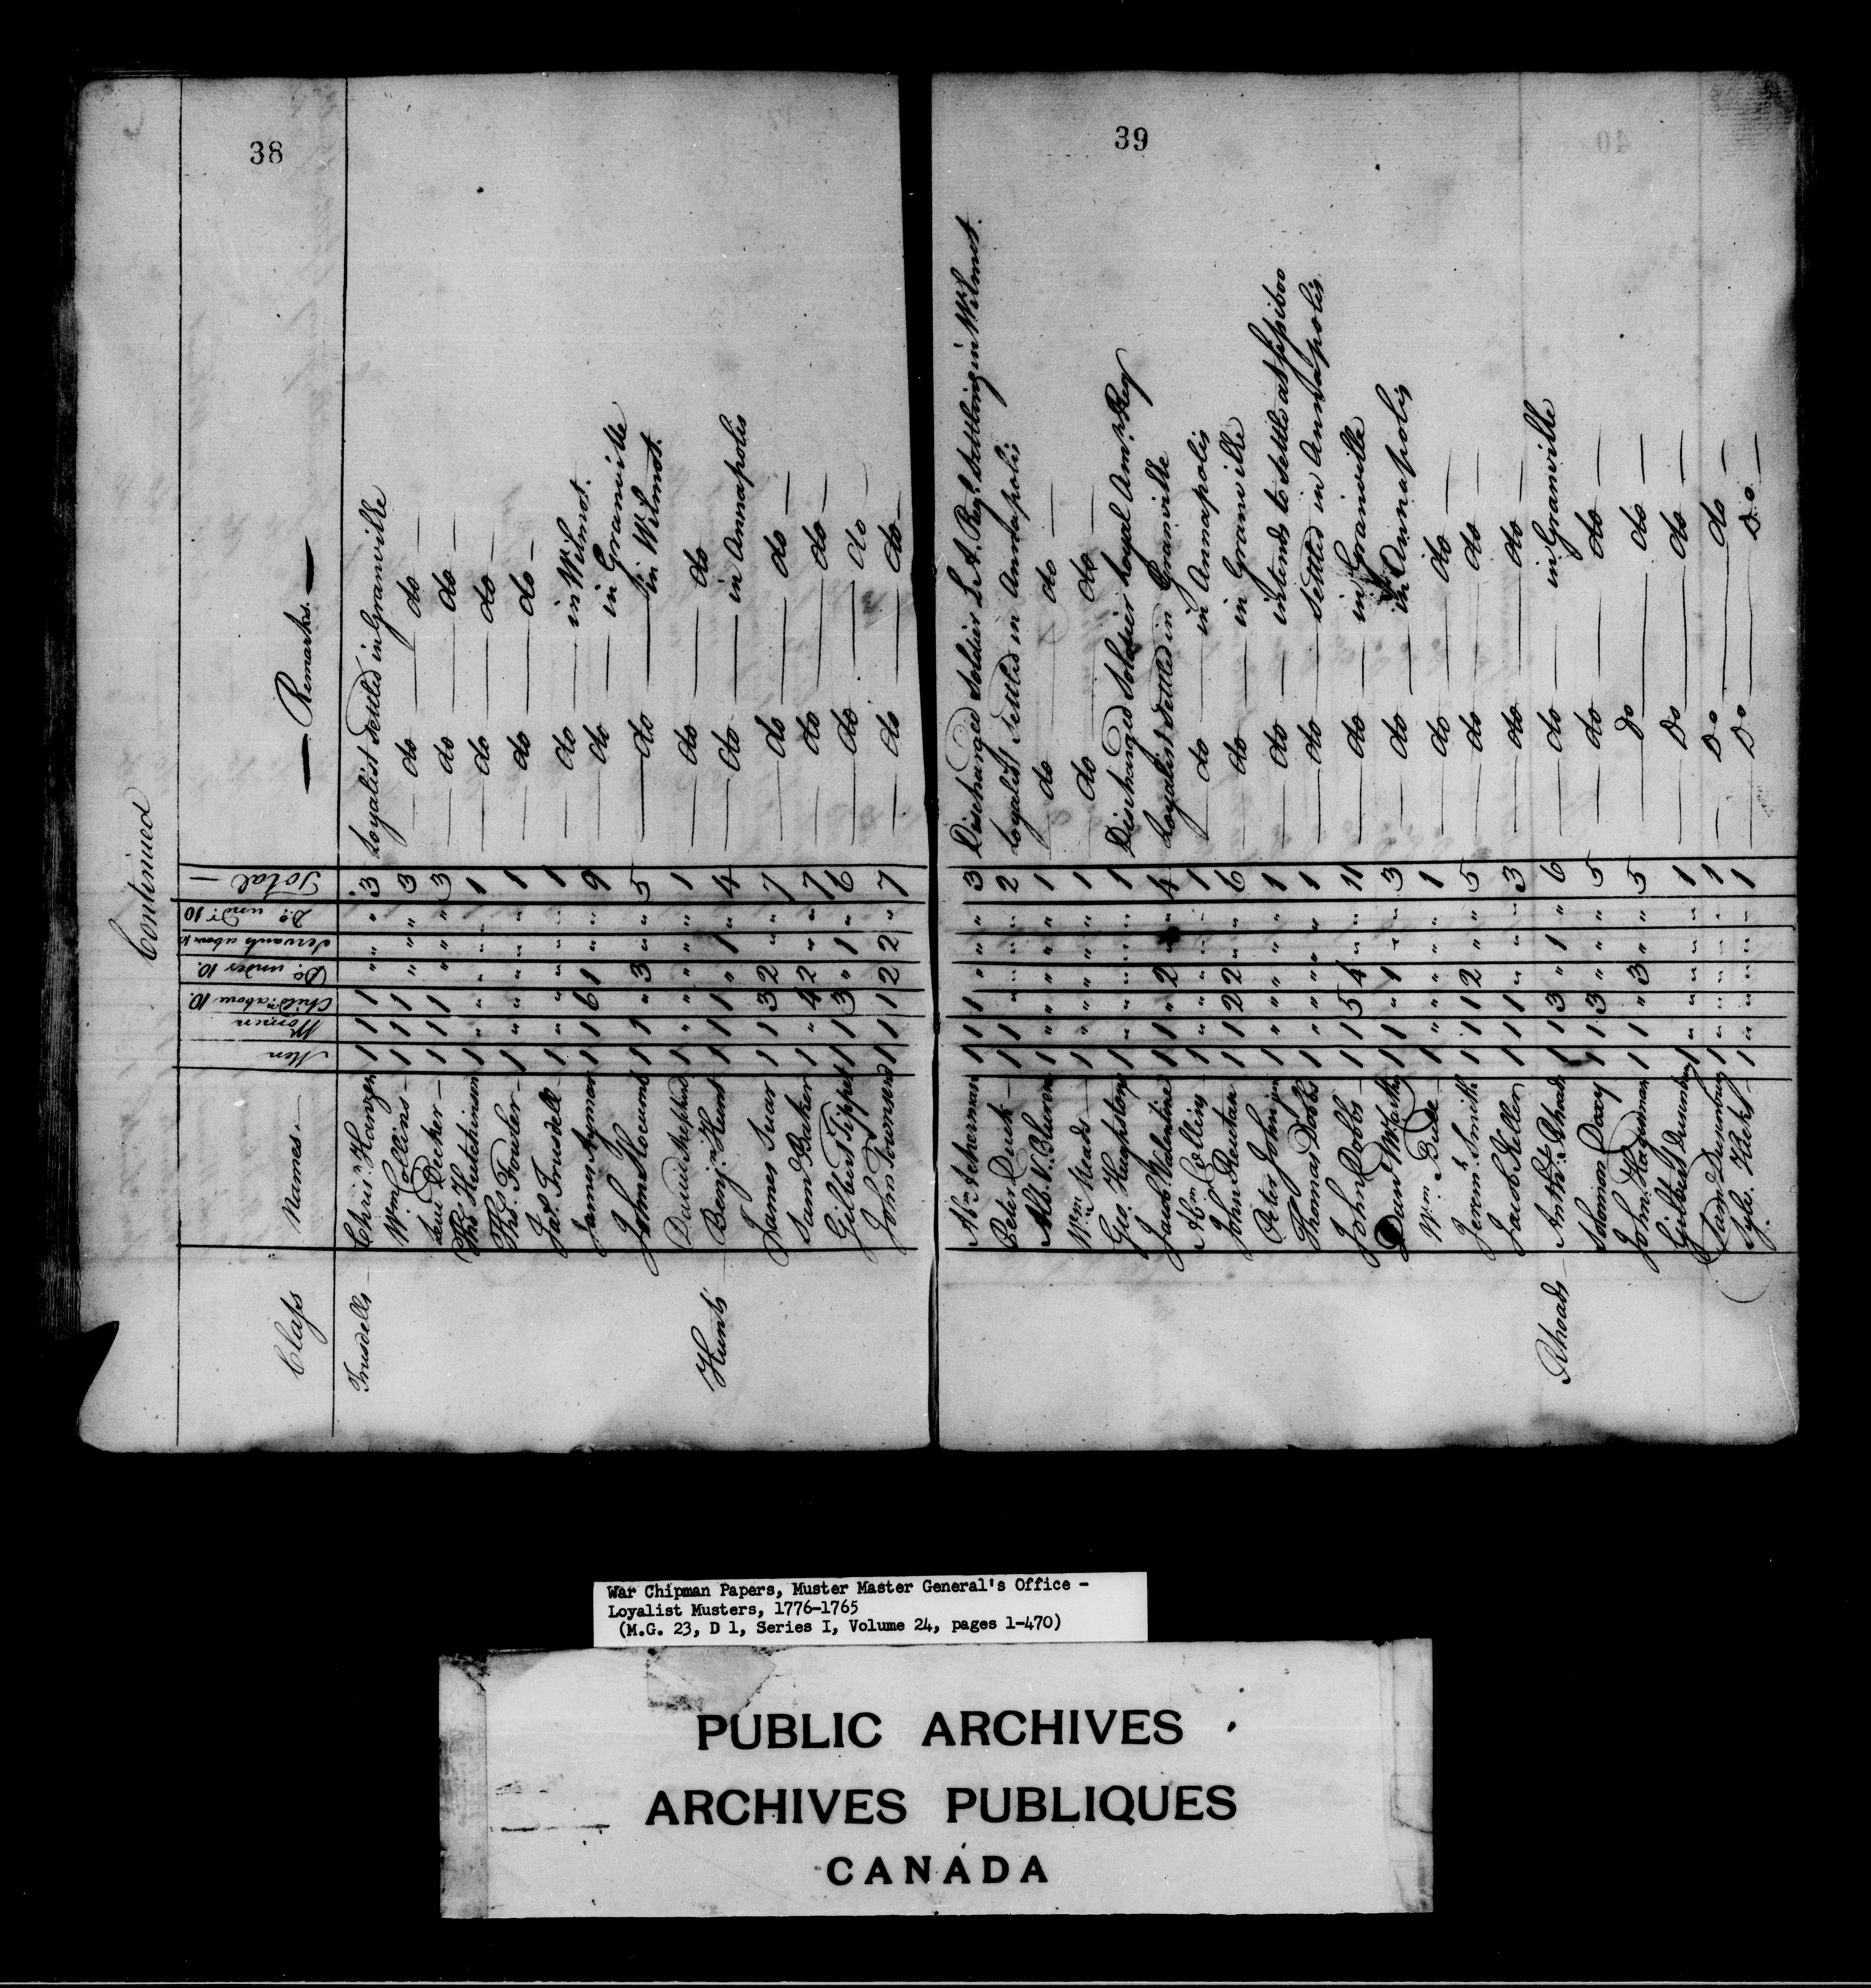 38
Continued
Class Names Men Women Child.n above 10. Do. under 10. Servants above 10 Do. und.r 10 Total Remarks
Trusdells Chris.n Hanzen 1 1 1 " " " 3 Loyalist Settled in Granville
W.m Collins 1 1 1 " " " 3 do do
Levi Decker 1 1 1 " " " 3 do do
Tho.s Hutchinson 1 " " " " " 1 do do
Tho.s Fowler 1 " " " " " 1 do do
Ja.s Trusdell 1 " " " " " 1 do in Wilmot.
James Aymar 1 1 6 1 " " 9 do in Granville
John Slocum 1 1 " 3 " " 5 do in Wilmot.
David Shephard 1 " " " " " 1 do do
Hunts Benj.n Hunt 1 1 1 " 1 " 4 do in Annapolis
James Suar 1 1 3 2 " " 7 do do
Sam Baker 1 " 4 2 " " 7 do do
Gilbert Tippet 1 1 3 " 1 " 6 do do
John Townsend 1 1 1 2 2 " 7 do do
39
Ab.m Ackerman 1 1 1 " " " 3 Discharged Soldier L. A. Reg.t Settling in Wilmot.
Peter Duck 1 1 " " " " 2 Loyalist Settled in Annapolis
Alb. V. Buren 1 " " " " " 1 do do
W.m Reads 1 " " " " " 1 do do
Geo. Hughston 1 " " " " " 1 Discharged Soldier royal Am.n Reg
Jacob Valentine 1 1 " 2 " " 4 Loyalist Settled in Granville
Ab.m Colling 1 " " " " " 1 do in Annapolis
John Reutan 1 1 2 2 " " 6 do in Granville
Peter John jun 1 " " " " " 1 do intends to settle at Sippiboo
Thomas Dobbs 1 " " " " " 1 do Settled in Annapolis
John Dobbs 1 1 5 4 " " 11 do in Granville
Dan.l McCarthy 1 1 " 1 " " 3 do in Annapolis
W.m Bude 1 " " " " " 1 do do
Jerem.h Smith 1 1 1 2 " " 5 do do
Jacob Keller 1 1 1 " " " 3 do do
Rhoads Anth.y Rhoads 1 1 3 " 1 " 6 do in Granville
Solomon Doxy 1 1 3 " " " 5 do do
John Hagerman 1 1 " 3 " " 5 Do do
Gilbert Dusenbury 1 " " " " " 1 Do do
Sam.l Dusenbury 1 " " " " " 1 Do do
1 " " " " " 1 Do Do
War Chipman Papers, Muster Master General's Office -
Loyalist Musters, 1776-1765
(M.G. 23, D 1, Series I, Volume 24, pages 1-470)
PUBLIC ARCHIVES
ARCHIVES PUBLIQUES
CANADA